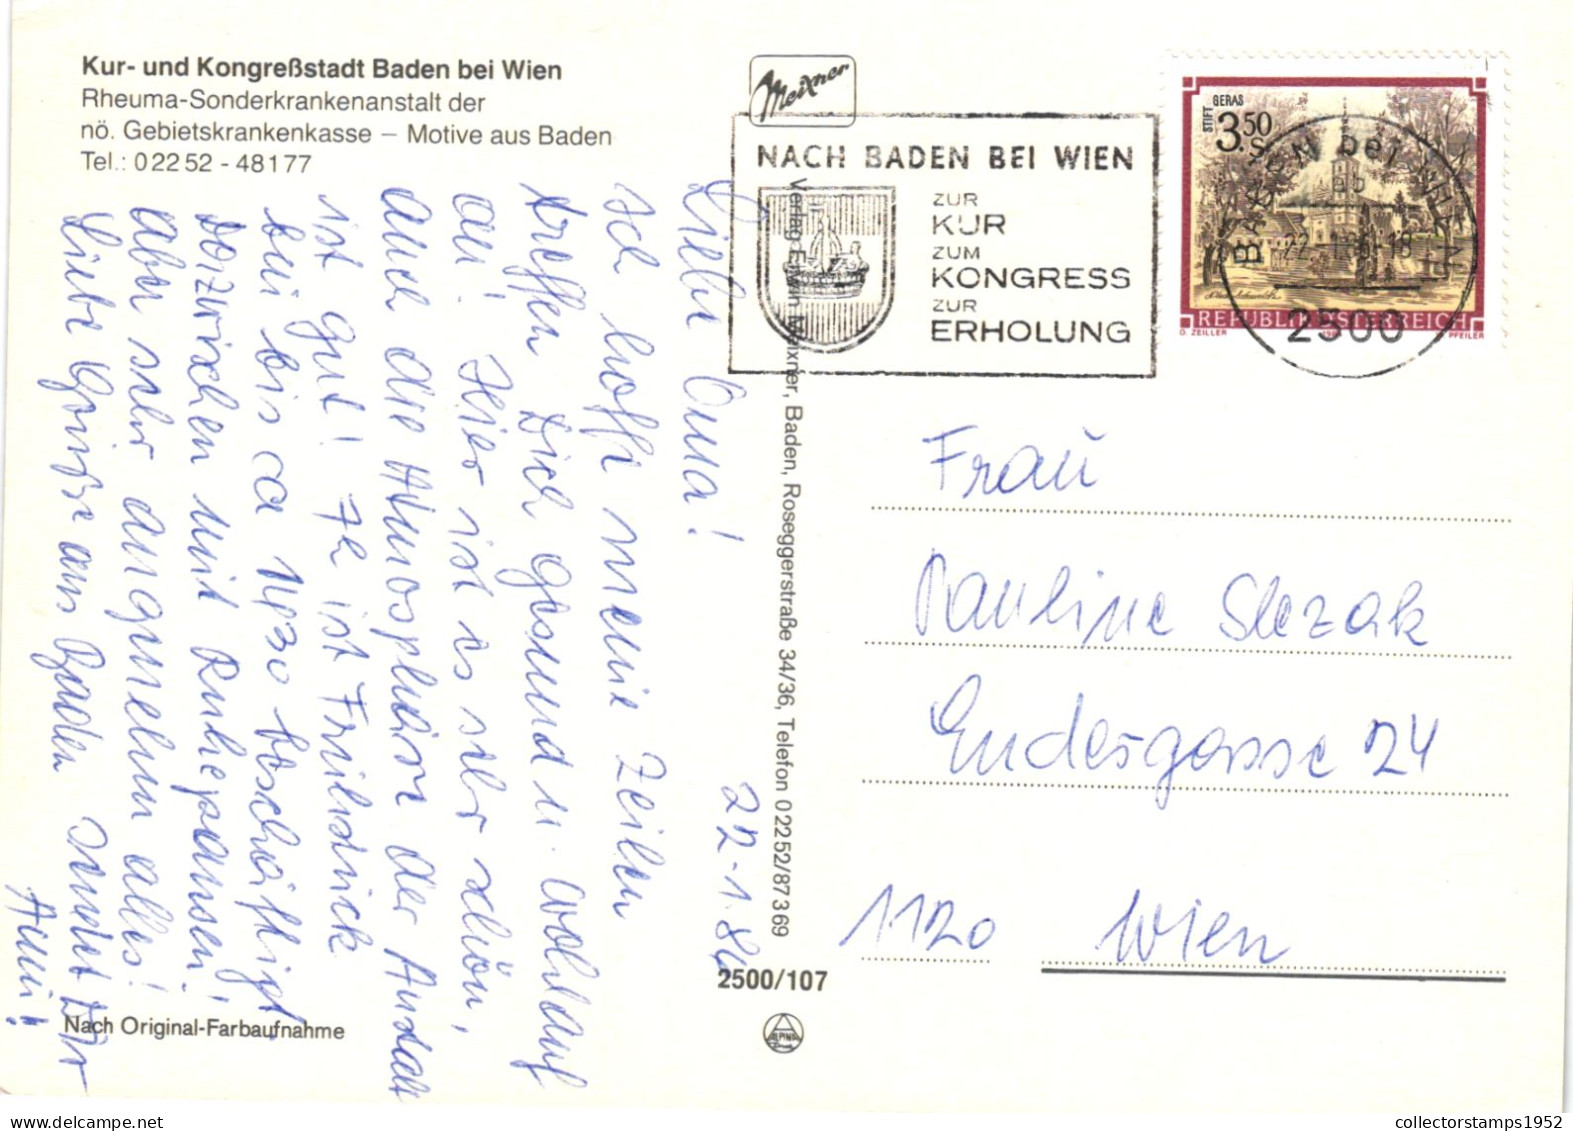 Kur- und Kongreßstadt Baden bei Wien
Rheuma-Sonderkrankenanstalt der
nö. Gebietskrankenkasse – Motive aus Baden
Tel.: 0 22 52 - 48177
Liebe Oma!
22.1.86
Ich hoffe meine Zeilen
treffen Dich gesund u. wohlauf
an! Hier ist es sehr schön,
auch die Atmosphäre der Anstalt
ist gut! 7h ist Frühstück
bin bis ca 1130 beschäftigt
dazwischen mit Ruhepausen,
aber sehr angenehm alles!
Liebe Grüße aus Baden sendet Dir
Anni!
Nach Original-Farbaufnahme
Meixner
Verlag Erwin Meixner, Baden, Roseggerstraße 34/36, Telefon 0 2252/87 3 69
2500/107
ALPINA
NACH BADEN BEI WIEN
ZUR
KUR
ZUM
KONGRESS
ZUR
ERHOLUNG
STIFT GERAS
3.50
S
REPUBLIK ÖSTERREICH
O. ZEILLER
PFEILER
BADEN bei WIEN
22.-1.86-18
2500
Frau
Pauline Slezak
Endesgasse 24
1120 Wien
collectorstamps1952